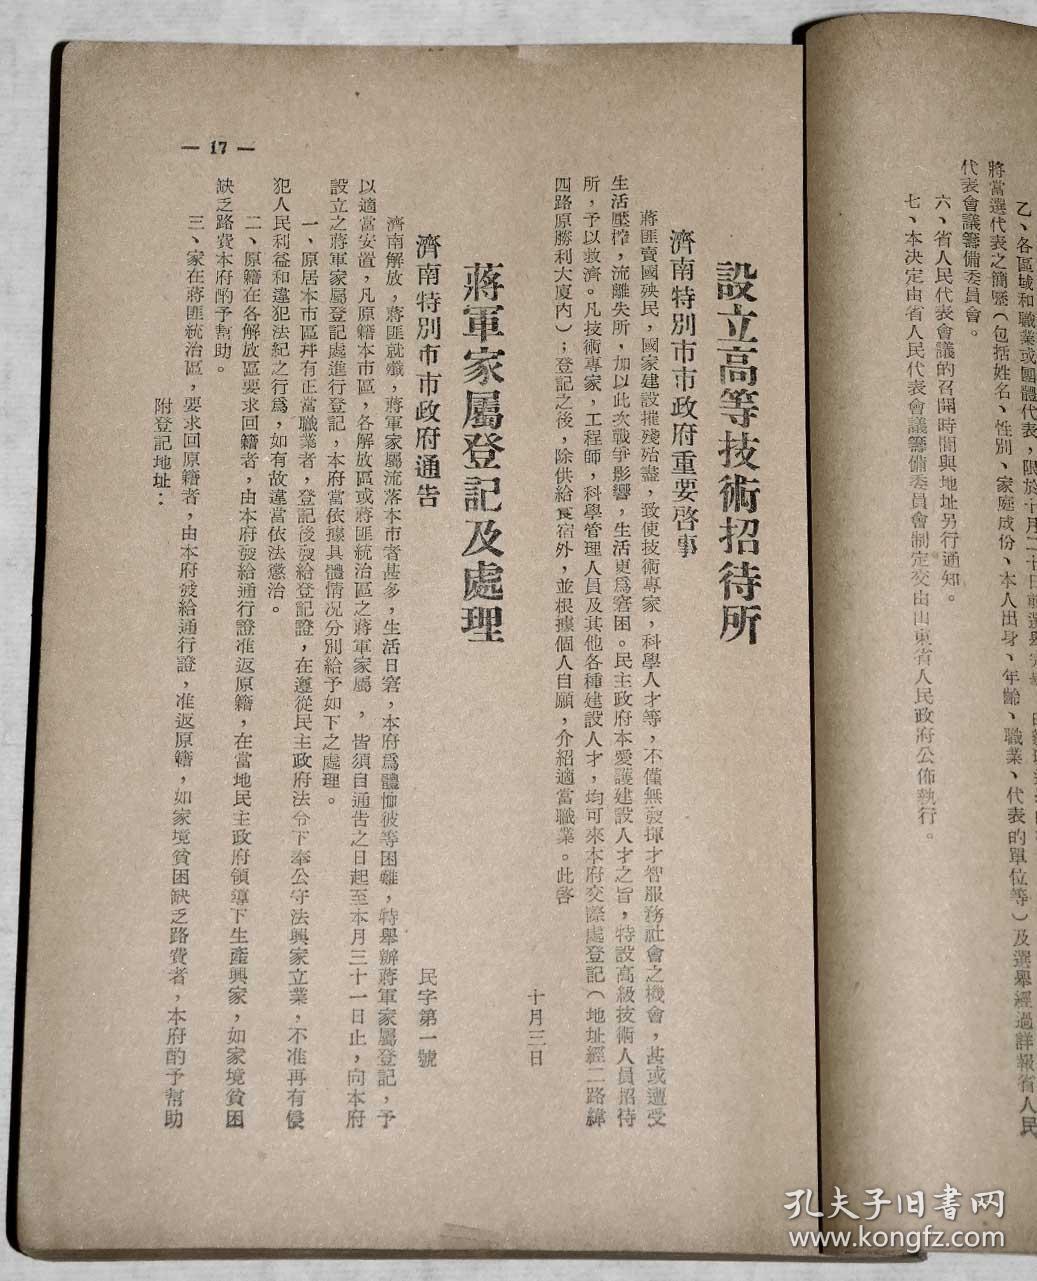 乙、各區域和職業或團體代表，限於十月二十日前選舉完
將當選代表之簡歷（包括姓名、性別、家庭成份、本人出身、年齡、職業、代表的單位等）及選舉經過詳報省人民
代表會議籌備委員會。
六、省人民代表會議的召開時間與地址另行通知。
七、本決定由省人民代表會議籌備委員會制定交由山東省人民政府公佈執行。
設立高等技術招待所
濟南特別市市政府重要啓事
蔣匪賣國殃民，國家建設摧殘殆盡，致使技術專家，科學人才等，不僅無發揮才智服務社會之機會，甚或遭受
生活壓榨，流離失所，加以此次戰爭影響，生活更爲窘困。民主政府本愛護建設人才之旨，特設高級技術人員招待
所，予以救濟。凡技術專家，工程師，科學管理人員及其他各種建設人才，均可來本府交際處登記（地址經二路緯
四路原勝利大廈內）；登記之後，除供給食宿外，並根據個人自願，介紹適當職業。此啓
十月三日
蔣軍家屬登記及處理
濟南特別市市政府通告
民字第一號
濟南解放，蔣匪就殲，蔣軍家屬流落本市者甚多，生活日窘，本府爲體恤彼等困難，特舉辦蔣軍家屬登記，予
以適當安置，凡原籍本市區，各解放區或蔣匪統治區之蔣軍家屬，皆須自通告之日起至本月三十一日止，向本府
設立之蔣軍家屬登記處進行登記，本府當依據具體情况分別給予如下之處理。
一、原居本市區幷有正當職業者，登記後發給登記證，在遵從民主政府法令下奉公守法興家立業，不准再有侵
犯人民利益和違犯法紀之行爲，如有故違當依法懲治。
二、原籍在各解放區要求回籍者，由本府發給通行證准返原籍，在當地民主政府領導下生產興家，如家境貧困
缺乏路費本府酌予幫助。
三、家在蔣匪統治區，要求回原籍者，由本府發給通行證，准返原籍，如家境貧困缺乏路費者，本府酌予幫助
附登記地址：
— 17 —
孔夫子旧書网
www.kongfz.com